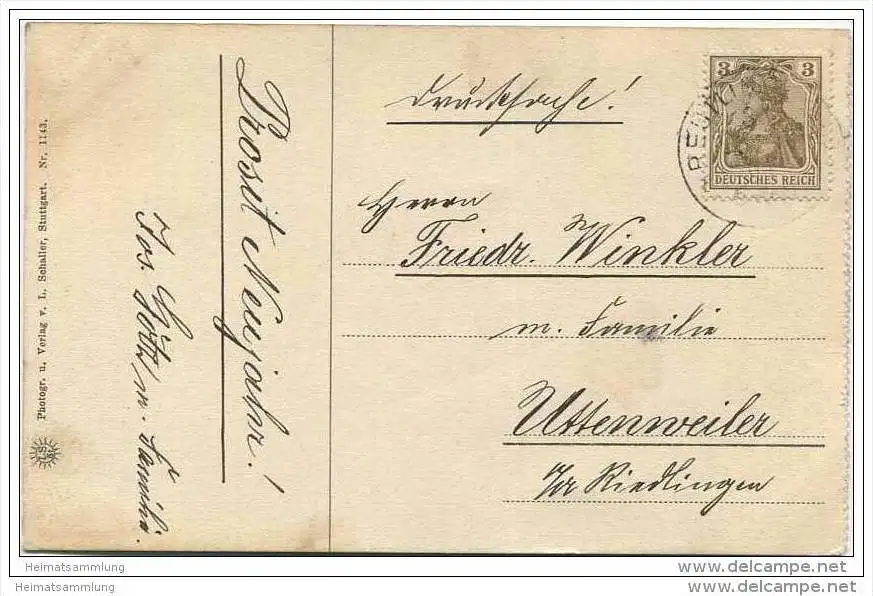 Photogr. u. Verlag v. L. Schaller, Stuttgart. Nr. 1143.
Prosit Neujahr!
Jos. Götz m. Familie.
Drucksache!
3 3
DEUTSCHES REICH
Herrn
Friedr. Winkler
m. Familie
Uttenweiler
Riedlingen
Heimatsammlung
www.delcampe.net
Heimatsammlung
www.delcampe.net